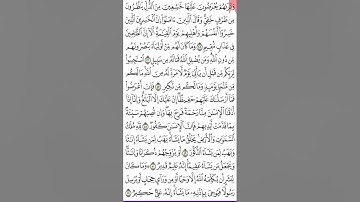 وَتَرَىٰهُمْ يُعْرَضُونَ عَلَيْهَا خَٰشِعِينَ مِنَ ٱلذُّلِّ يَنظُرُونَ
مِن طَرْفٍ خَفِىٍّ وَقَالَ ٱلَّذِينَ ءَامَنُوٓا۟ إِنَّ ٱلْخَٰسِرِينَ ٱلَّذِينَ
خَسِرُوٓا۟ أَنفُسَهُمْ وَأَهْلِيهِمْ يَوْمَ ٱلْقِيَٰمَةِ أَلَآ إِنَّ ٱلظَّٰلِمِينَ
فِى عَذَابٍ مُّقِيمٍ ٤٥ وَمَا كَانَ لَهُم مِّنْ أَوْلِيَآءَ يَنصُرُونَهُم
مِّن دُونِ ٱللَّهِ وَمَن يُضْلِلِ ٱللَّهُ فَمَا لَهُۥ مِن سَبِيلٍ ٤٦ ٱسْتَجِيبُوا۟
لِرَبِّكُم مِّن قَبْلِ أَن يَأْتِىَ يَوْمٌ لَّا مَرَدَّ لَهُۥ مِنَ ٱللَّهِ مَا لَكُم
مِّن مَّلْجَإٍ يَوْمَئِذٍ وَمَا لَكُم مِّن نَّكِيرٍ ٤٧ فَإِنْ أَعْرَضُوا۟
فَمَآ أَرْسَلْنَٰكَ عَلَيْهِمْ حَفِيظًا إِنْ عَلَيْكَ إِلَّا ٱلْبَلَٰغُ وَإِنَّآ إِذَآ
أَذَقْنَا ٱلْإِنسَٰنَ مِنَّا رَحْمَةً فَرِحَ بِهَا وَإِن تُصِبْهُمْ سَيِّئَةٌۢ
بِمَا قَدَّمَتْ أَيْدِيهِمْ فَإِنَّ ٱلْإِنسَٰنَ كَفُورٌ ٤٨ لِّلَّهِ مُلْكُ
ٱلسَّمَٰوَٰتِ وَٱلْأَرْضِ يَخْلُقُ مَا يَشَآءُ يَهَبُ لِمَن يَشَآءُ إِنَٰثًا
وَيَهَبُ لِمَن يَشَآءُ ٱلذُّكُورَ ٤٩ أَوْ يُزَوِّجُهُمْ ذُكْرَانًا وَإِنَٰثًا
وَيَجْعَلُ مَن يَشَآءُ عَقِيمًا إِنَّهُۥ عَلِيمٌ قَدِيرٌ ٥٠ وَمَا كَانَ
لِبَشَرٍ أَن يُكَلِّمَهُ ٱللَّهُ إِلَّا وَحْيًا أَوْ مِن وَرَآئِ حِجَابٍ أَوْ يُرْسِلَ
رَسُولًا فَيُوحِىَ بِإِذْنِهِۦ مَا يَشَآءُ إِنَّهُۥ عَلِىٌّ حَكِيمٌ ٥١